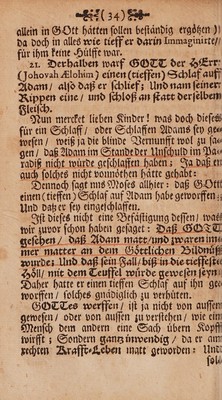 (34)
allein in GOtt hätten sollen beständig ergötzen)
da doch in alles wie tieff er darin Immaginirte/
für ihm keine Hülffe war.
21. Derhalben warf GOTT der HErr
(Johovah Ælohim) einen (tieffen) Schlaf auff
Adam / also daß er schlief; Und nam seiner
Rippen eine / und schloß an statt derselben
Fleisch.
Nun mercket lieben Kinder! was doch dieses
für ein Schlaff / oder Schlaffen Adams sey ge-
wesen / weiß ja die blinde Vernunft wol zu sa-
gen / daß Adam im Stande der Unschuld im Pa-
radiß nicht würde geschlaffen haben: Ja daß er
auch solches nicht vonnöthen gehabt habe:
Dennoch sagt uns Moses allhier: daß GOtt
einen (tieffen) Schlaf auf Adam habe geworffen;
Und daß er sey eingeschlaffen.
Ist dieses nicht eine Befästigung dessen / was
wir zuvor schon haben gesaget: Daß GOTT
gesehen / daß Adam matt / und zwaren im-
mer matter an dem Göttlichen Bildnüß
wurde: Und daß sein Fall / biß in die tieffeste
Höll / mit dem Teuffel würde gewesen seyn:
Daher hatte er einen tieffen Schlaf auf ihn ge-
worffen / solches gnädiglich zu verhüten.
GOTTes werffen / ist ja nicht von aussen
gewesen / oder von aussen zu verstehen / wie ein
Mensch dem andern eine Sach übern Kopff
wirfft; Sondern gantz inwendig / da er am
rechten Krafft-Leben matt geworden: Und